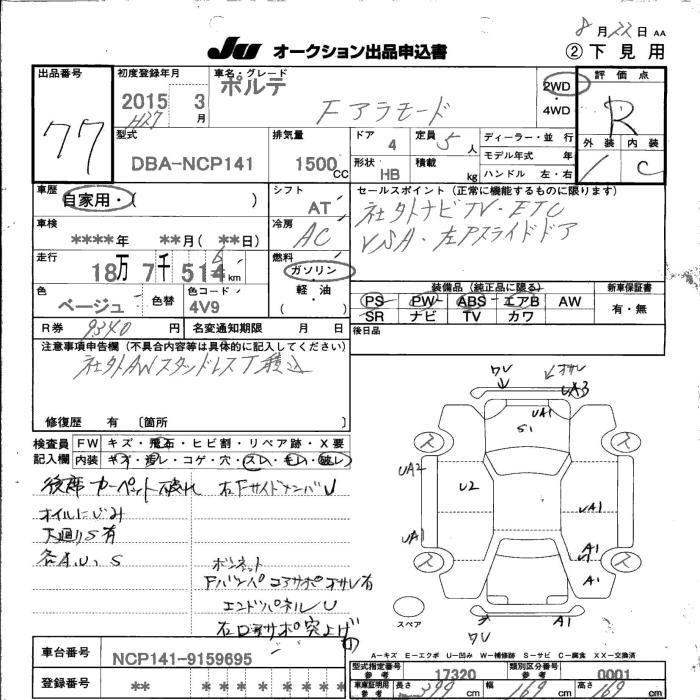 8月22日 AA
JU オークション出品申込書 ②下見用
出品番号 77
初度登録年月 2015年 3月 H27
車名・グレード ポルテ
F アラモード
2WD・4WD
評価点 R
外装 内装
/ C
型式 DBA-NCP141
排気量 1500CC
ドア 4
定員 5人
形状 HB
積載 kg
ディーラー・並行
モデル年式 年
ハンドル 左・右
車歴 自家用・( )
シフト AT
セールスポイント(正常に機能するものに限ります)
社外ナビTV・ETC
VSA・左Pスライドドア
車検 ****年 **月(**日)
冷房 AC
走行 18万7千514km 6
燃料 ガソリン・軽・油( )
色 ベージュ
色替
色コード 4V9
装備品(純正品に限る)
PS PW ABS エアB AW
SR ナビ TV カワ
新車保証書 有・無
R券 9340円
名変通知期限 月 日
後日品
注意事項申告欄(不具合内容等は具体的に記入してください)
社外AWスタッドレスT積込
修復歴 有 〔箇所 〕
検査員記入欄
FW キズ・飛石・ヒビ割・リペア跡・X要
内装 キズ・汚レ・コゲ・穴・スレ・モレ・破レ
後席カーペット破れ 右FサイドメンバU
オイルにじみ
下廻りS有
各A.U、S
ボンネット
Fバンパ コアサポ オサレ有
エンドパネルU
右ロアサポ突上げ
ワレ オサレ
UA3
UA1
S1
UA2
U2
UA1
UA1
A1
A1
ワレ A1
スペア
A-キズ E-エクボ U-凹み W-補修跡 S-サビ C-腐食 XX-交換済
車台番号 NCP141-9159695
登録番号 ** * * * * * *
型式指定番号 参考 17320
類別区分番号 参考 0001
車庫証明用 参考 長さ 399cm 幅 169cm 高さ 169cm